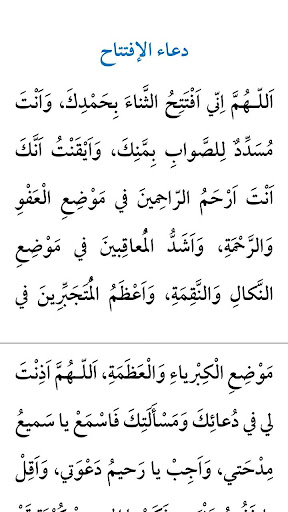 دعاء الإفتتاح
اَللّـهُمَّ اِنّي اَفْتَتِحُ الثَّناءَ بِحَمْدِكَ، وَاَنْتَ
مُسَدِّدٌ لِلصَّوابِ بِمَّنِكَ، وَاَيْقَنْتُ اَنَّكَ
اَنْتَ اَرْحَمُ الرّاحِمينَ في مَوْضِعِ الْعَفْوِ
وَالرَّحْمَةِ، وَاَشَدُّ الْمُعاقِبينَ في مَوْضِعِ
النَّكالِ وَالنَّقِمَةِ، وَاَعْظَمُ الْمُتَجَبِّرينَ في
مَوْضِعِ الْكِبْرياءِ وَالْعَظَمَةِ، اَللّـهُمَّ اَذِنْتَ
لي في دُعائِكَ وَمَسْأَلَتِكَ فَاسْمَعْ يا سَميعُ
مِدْحَتي، وَاَجِبْ يا رَحيمُ دَعْوَتي، وَاَقِلْ